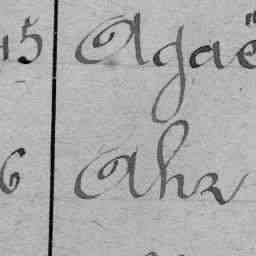 45 Agaë
6 Ahr